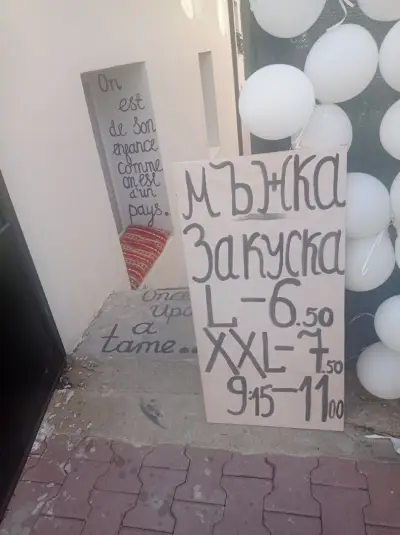 On
est
de son
enfance
comme
on est
d'un
pays.
Once
Upo
a
tame...
МЪЖКА
Закуска
L-6.50
XXL-7.50
9:15-11 00